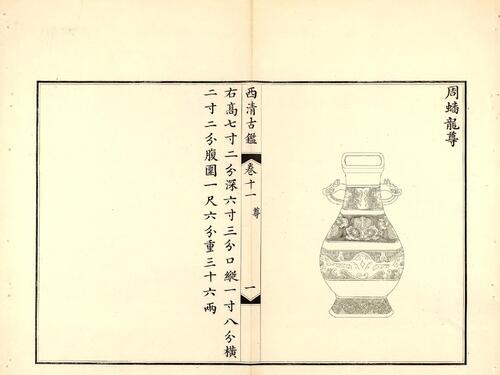 周蟠龍尊
西清古鑑
卷十一
尊
一
右高七寸二分深六寸三分口縱一寸八分橫
二寸二分腹圍一尺六分重三十六兩